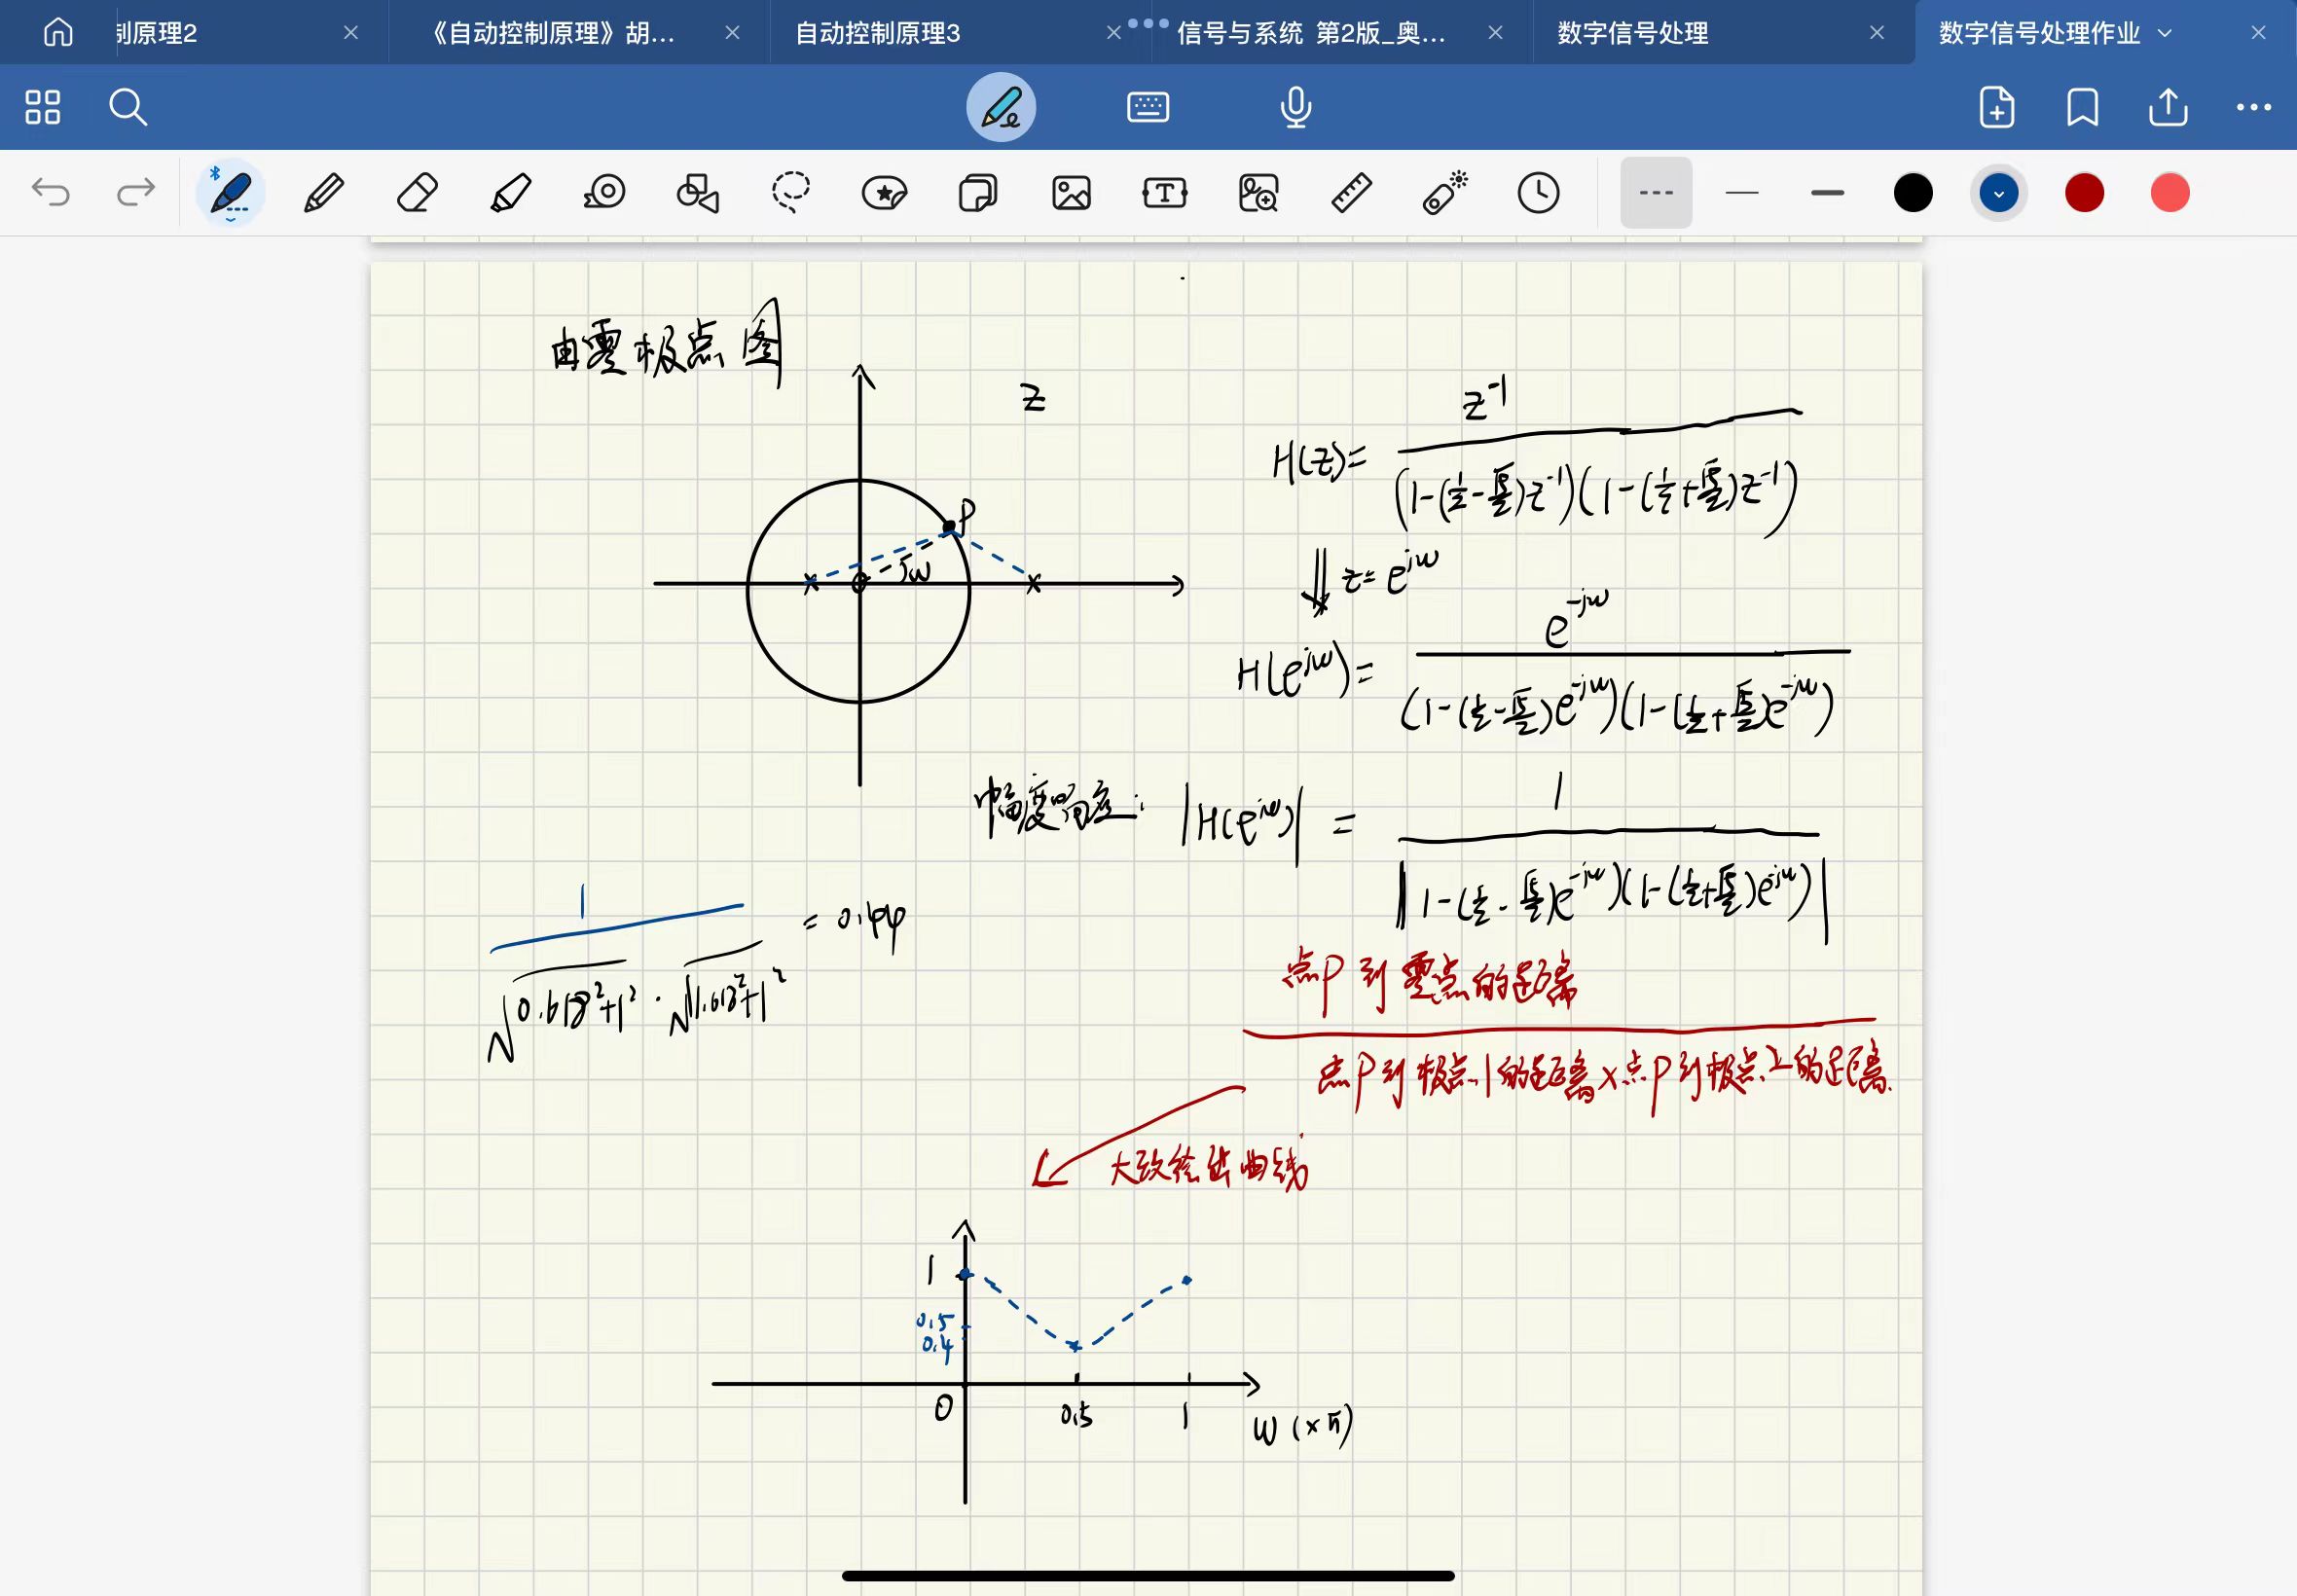 制原理2
《自动控制原理》胡...
自动控制原理3
信号与系统 第2版_奥...
数字信号处理
数字信号处理作业
由零极点图
z
P
ω
H(z)= z⁻¹ / (1-(1/2-√5/2)z⁻¹)(1-(1/2+√5/2)z⁻¹)
⇓ z=e^jω
H(e^jω)= e^-jω / (1-(1/2-√5/2)e^-jω)(1-(1/2+√5/2)e^-jω)
幅度响应: |H(e^jω)| = 1 / |1-(1/2-√5/2)e^-jω)(1-(1/2+√5/2)e^jω)|
1 / √0.618²+1² · √1.618²+1² = 0.44
点P到零点的距离
点P到极点1的距离×点P到极点2的距离
大致绘出曲线
1
0.5
0.4
0
0.5
1
W (×π)